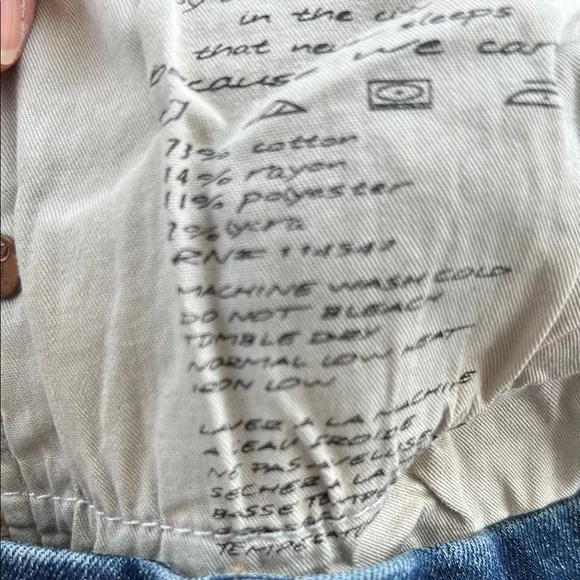 in the
that ne We can
73% cotton
14% rayon
11% polyester
2% lycra
RN# 114549
MACHINE WASH COLD
DO NOT BLEACH
TUMBLE DRY
NORMAL LOW HEAT
IRON LOW
LAVER A LA MACHINE
A EAU FROIDE
NE PAS
SECHER A LA
BASSE